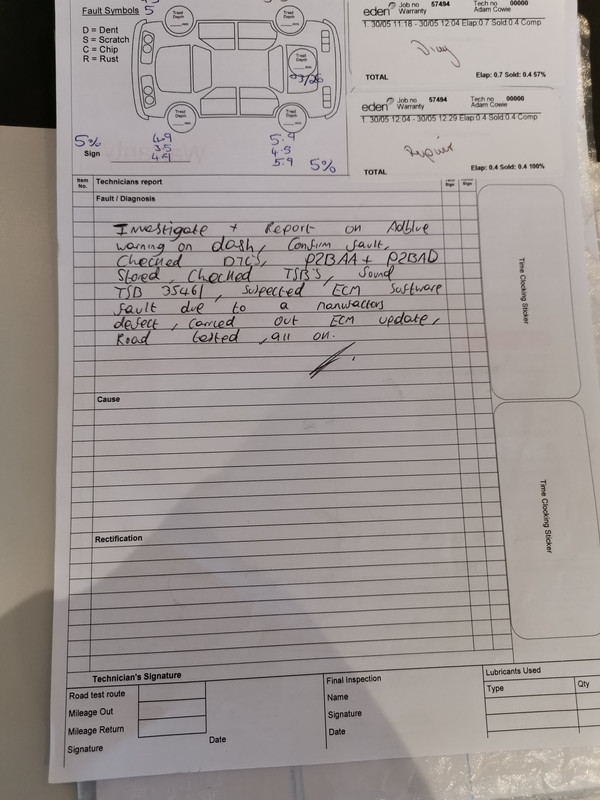 Fault Symbols
5
D = Dent
S = Scratch
C = Chip
R = Rust
Tread Depth
mm
Tread Depth
mm
Tread Depth
mm
03/26
Tread Depth
Tread Depth
5%
4.9
3.5
4.9
5.9
4.5
5.9
5%
Sign
eden Job no 57494 Tech no 00000
Warranty Adam Cowie
1. 30/05 11.18 - 30/05 12.04 Elap 0.7 Sold 0.4 Comp
Diag
TOTAL Elap: 0.7 Sold: 0.4 57%
eden Job no 57494 Tech no 00000
Warranty Adam Cowie
1. 30/05 12.04 - 30/05 12.29 Elap 0.4 Sold 0.4 Comp
Repair
TOTAL Elap: 0.4 Sold: 0.4 100%
Item No. Technicians report Sign Sign
Fault / Diagnosis
Investigate + Report on Adblue
warning on dash, Confirm fault,
Checked DTC's, P2BAA + P2BAD
Stored, Checked TSB's, Sound
TSB 35461, Suspected ECM Software
fault due to a manufactors
defect, Carried out ECM update,
Road tested, all on.
Cause
Rectification
Time Clocking Sticker
Time Clocking Sticker
Technician's Signature
Road test route
Mileage Out
Mileage Return
Signature
Date
Final Inspection
Name
Signature
Date
Lubricants Used
Type Qty